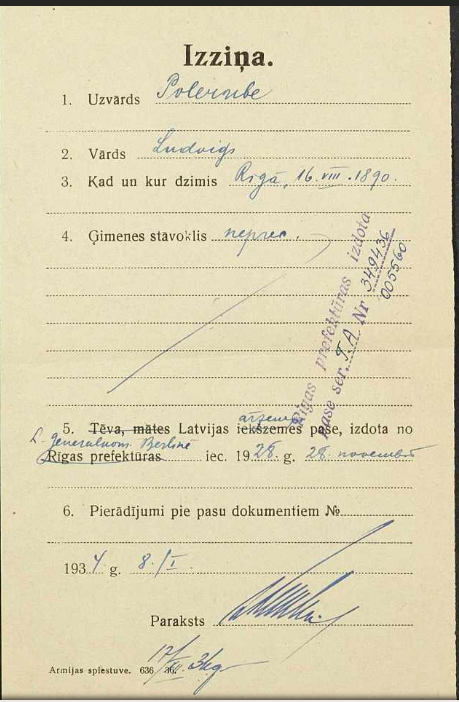 Izziņa.
1. Uzvārds Polermbe
2. Vārds Ludvigs
3. Kad un kur dzimis Rīgā, 16. VIII. 1890.
4. Ģimenes stāvoklis neprec.
Rīgas prefektūras izdota
pase ser. TA Nr 349436
005560
ārzemju
5. Tēva, mātes Latvijas iekšzemes pase, izdota no
L. generalkons. Berlīnē
Rīgas prefektūras iec. 1928. g. 28. novembrī
6. Pierādījumi pie pasu dokumentiem №
1934. g. 8./I.
Paraksts
Armijas spiestuve. 636. 36.